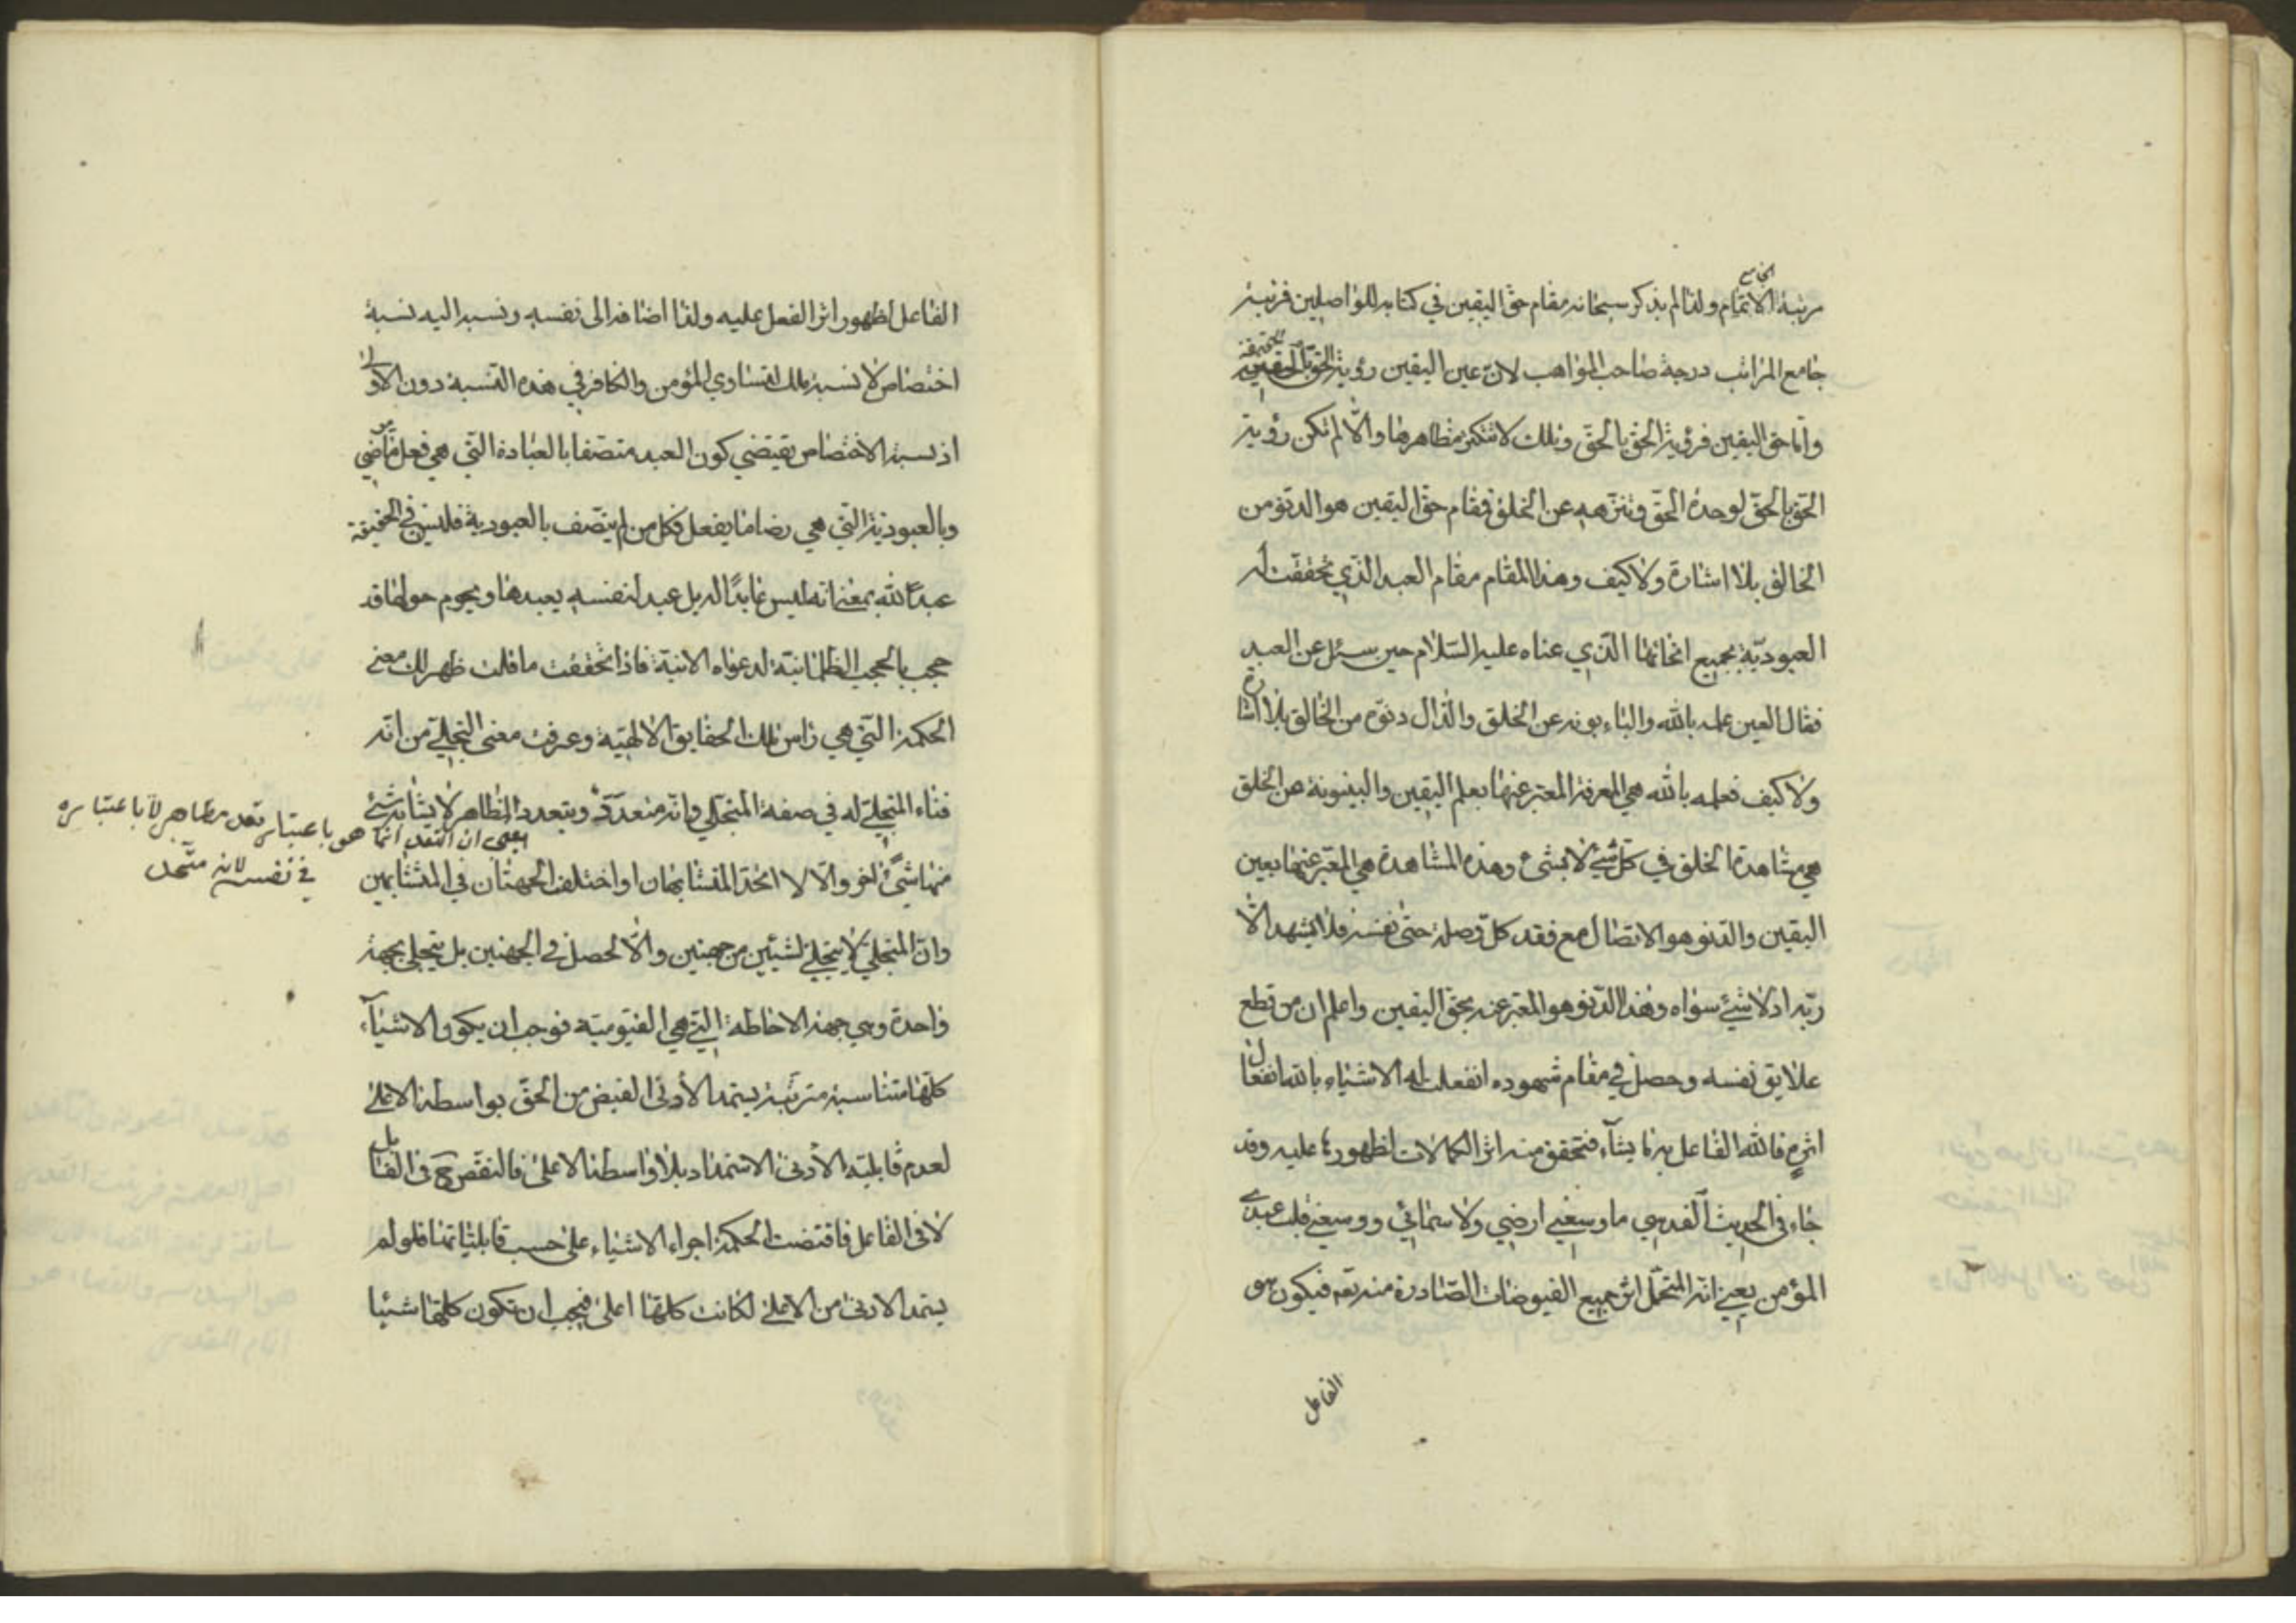 الجامع
مرتبة الاتمام ولذا لم يذكر سبحانه مقام حق اليقين في كتابه للواصلين فرتبة
جامع المراتب درجة صاحب المواهب لان عين اليقين رؤية الحق
واما حق اليقين فرؤية الحق بالحق وتلك لا تتكثر مظاهرها والا لم تكن رؤية
الحق بالحق لوحدة الحق وتنزهه عن الخلق فمقام حق اليقين هو الدنو من
الخالق بلا اشارة ولا كيف وهذا المقام مقام العبد الذي تحققت له
العبودية بجميع انحائها الذي عناه عليه السلام حين سئل عن العبد
فقال العين علمه بالله والباء بونه عن الخلق والدال دنوه من الخالق بلا اشارة
ولا كيف فعلمه بالله هي المعرفة المعبر عنها بعلم اليقين والبينونة عن الخلق
هي مشاهدة الخلق في كل شئ لا بشئ وهذه المشاهدة هي المعبر عنها بعين
اليقين والدنو هو الاتصال مع فقد كل وصلة حتى نفسه فلا يشهد الا
ربه اذ لا شئ سواه وهذا الدنو هو المعبر عنه بحق اليقين واعلم ان من قطع
علايق نفسه وحصل في مقام شهوده انفعلت له الاشياء بالله انفعال
اثره فالله الفاعل به ما يشآء فتحقق منه اثر الكمالات لظهورها عليه وقد
جاء في الحديث القدسي ما وسعني ارضي ولا سمائي ووسعني قلب عبدي
المؤمن يعني انه المتحمل اثر جميع الفيوضات الصادرة منه تعم فيكون هو
الفاعل
الفاعل لظهور اثر الفعل عليه ولذا اضافه الى نفسه ونسبه اليه نسبة
اختصاص لا نسبة ملك لتساوي المؤمن والكافر في هذه النسبة دون الاولى
اذ نسبة الاختصاص يقتضي كون العبد متصفا بالعبادة التي هي فعل ما يرضي
وبالعبودية التي هي رضا ما يفعل فكل من لم يتصف بالعبودية فليس في الحقيقة
عبدًا لله بمعنى انه ليس عابدًا له بل عبد لنفسه يعبدها ويحوم حولها قد
حجب بالحجب الظلمانية لدعواه الانية فاذا تحققت ما قلت ظهر لك معنى
الحكمة التي هي راس تلك الحقايق الالهية وعرفت معنى التجلي من انه
فناء المتجلي له في صفة المتجلي وانه متعدد ويتعدد المظاهر لا يشابه شئ
منها شئ اخر والا لا اتحد المتشابهان او اختلف الجهتان في المتشابهين
يعني ان التعدد انما هو باعتبار تعدد مظاهر لا باعتباره
في نفسه لانه متحد
وان المتجلي لا يتجلى لشيئين من جهتين والا لحصل ذو الجهتين بل يتجلى بجهة
واحدة وهي جهة الاحاطة التي هي القيومية فوجب ان يكون الاشيآء
كلها متناسبة مترتبة يستمد الأدنى الفيض من الحق بواسطة الاعلى
لعدم قابلية الأدنى الاستمداد بلا واسطة الاعلى فالنقص ح في القابل
لا في الفاعل فاقتضت الحكمة اجراء الاشياء على حسب قابلياتها فلو لم
يستمد الادنى من الاعلى لكانت كلها اعلى فيجب ان تكون كلها شيئا